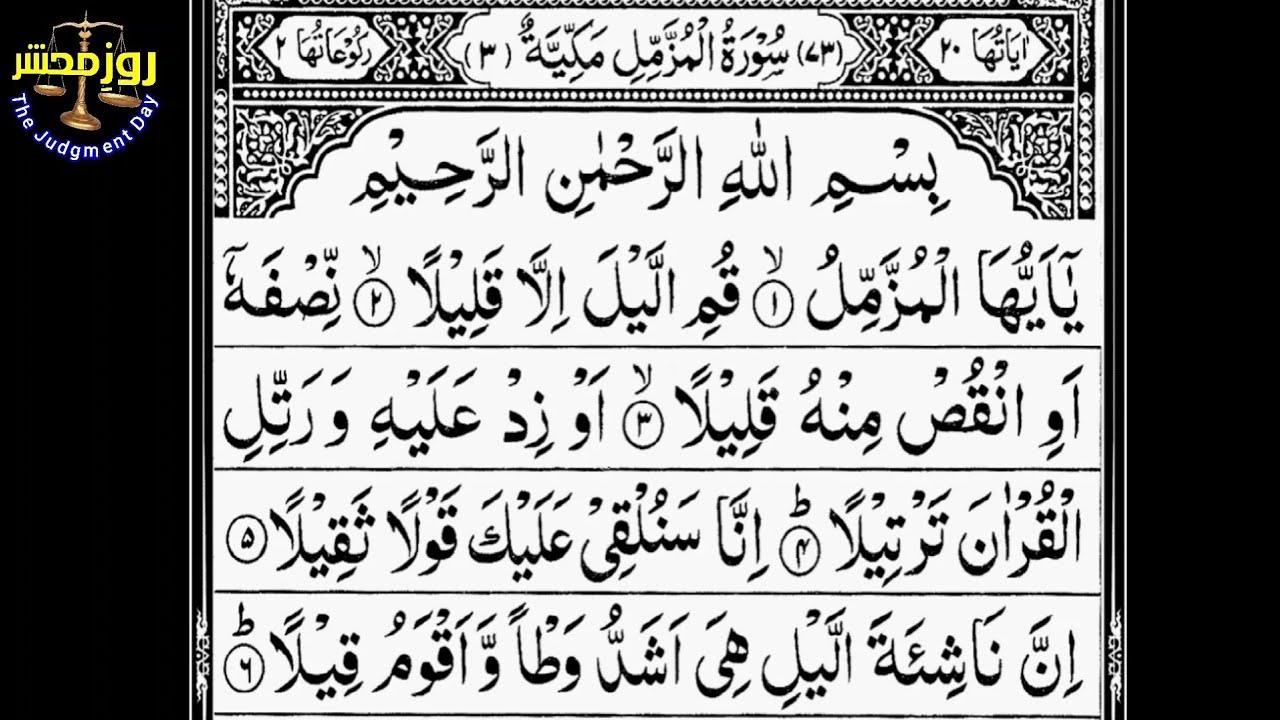 روزِ محشر
The Judgment Day
اٰيَاتُهَا ٢٠ (٧٣) سُوْرَةُ الْمُزَّمِّلِ مَكِّيَّةٌ (٣) رُكُوْعَاتُهَا ٢
بِسْمِ اللّٰهِ الرَّحْمٰنِ الرَّحِيْمِ
يٰٓاَيُّهَا الْمُزَّمِّلُ ۙ‏﴿۱﴾ قُمِ الَّيْلَ اِلَّا قَلِيْلًا ۙ‏﴿۲﴾ نِّصْفَهٗۤ
اَوِ انْقُصْ مِنْهُ قَلِيْلًا ۙ‏﴿۳﴾ اَوْ زِدْ عَلَيْهِ وَ رَتِّلِ
الْقُرْاٰنَ تَرْتِيْلًا ؕ‏﴿۴﴾ اِنَّا سَنُلْقِىْ عَلَيْكَ قَوْلًا ثَقِيْلًا ﴿۵﴾
اِنَّ نَاشِئَةَ الَّيْلِ هِىَ اَشَدُّ وَطْاً وَّاَقْوَمُ قِيْلًا ؕ‏﴿۶﴾